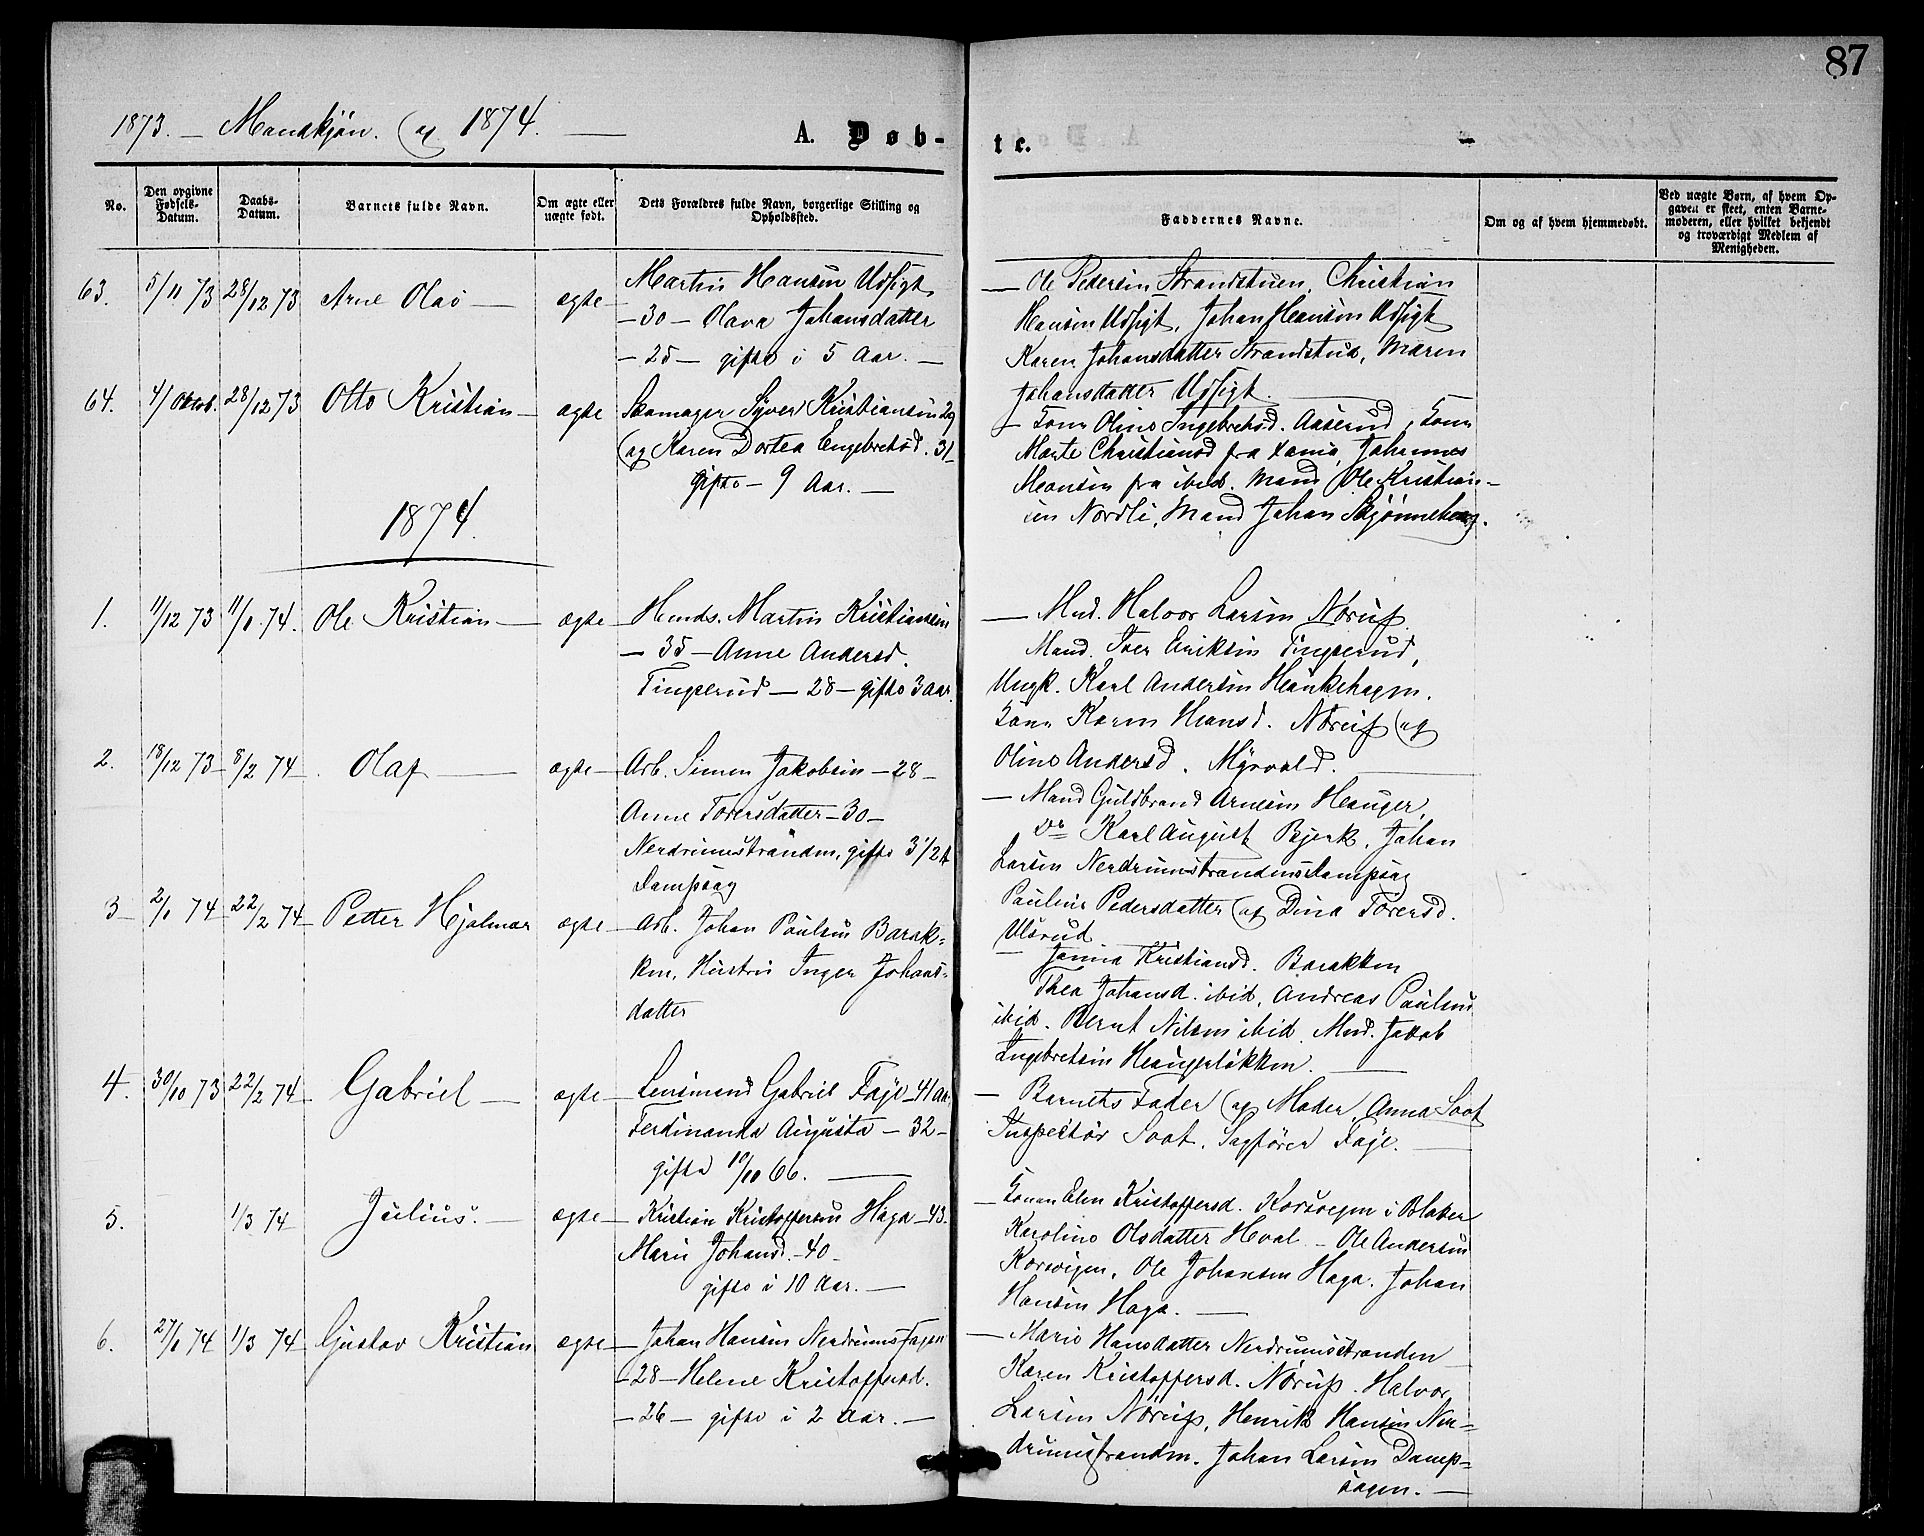 87
1873. — Mandkjön. og 1874. —
A. Døb-
te.
No.
Den opgivne
Fødsels-
Datum.
Daabs-
Datum.
Barnets fulde Navn.
Om ægte eller
uægte født.
Dets Forældres fulde Navn, borgerlige Stilling og
Opholdssted.
Faddernes Navne.
Om og af hvem hjemmedøbt.
Ved uægte Børn, af hvem Op-
gaven er skeet, enten Barne-
moderen, eller hvilket bekjendt
og troværdigt Medlem af
Menigheden.
63. 5/11 73 28/12 73 Arne Olas — ægte —
Martin Hansen Udsigt
— 30 — Olava Johansdatter
— 25 — gifte i 5 Aar. —
— Ole Pedersen Strandstuen, Christian
Hansen Udsigt, Johan Hansen Udsigt
Karen Johansdatter Strandstue, Maren
Johansdatter Udsigt.
64. 4/Oktob. 28/12 73 Otto Kristian — ægte
Skomager Syver Kristiansen 29
og Karen Dortea Engebretsd. 31
gifte — 9 Aar. —
Kone Oline Ingebretsd. Aaserud, Kone
Marte Christiansd fra Xania, Johannes
Hansen fra ibid. Mand Ole Kristian-
sen Nordli, Mand Johan Skjønneberg.
1874.
1. 11/12 73 11/1 74. Ole Kristian — ægte —
Huusm. Martin Kristiansen
— 35 — Anne Andersd.
Tingserud — 28 — gifte 3 Aar.
— Mnd. Halvor Larsen Nörup
Mand. Iver Eriksen Tingserud,
Ungk. Karl Andersen Haukehagen.
Kone Karen Hansd. Nörup og
Oline Andersd. Myrvold.
2. 18/12 73 8/2 74. Olaf — ægte —
Arb. Simen Jakobsen — 28 —
Anne Torersdatter — 30 —
Nerdrumstranden, gifte 3 1/2 A
Dampsag
— Mand Guldbrand Arnesen Hauger,
do Karl August Bjerk, Johan
Larsen Nerdrumstrandens Dampsag
Pauline Pedersdatter og Dina Torersd.
Ulsrud
3 2/1 74 22/2 74 Petter Hjalmar ægte —
Arb. Johan Paulsen Barak-
ken, Hustru Inger Johans-
datter
— Janna Kristiansd. Barakken
Thea Johansd. ibid, Andreas Paulsen
ibid. Bernt Nilsen ibid. Mnd. Jakob
Engebretsen Haugerløkken. —
4. 30/10 73 22/2 74 Gabriel — ægte —
Lensmand Gabriel Faye — 41 Aar.
Ferdinanda Augusta — 32 —
gifte 10/10 66. —
— Barnets Fader og Moder, Anna Soot
Inspektør Soot. Sagfører Faye. —
5. 1/3 74 Julius. — ægte —
Kristian Kristoffersen Haga — 43.
Marie Johansd. — 40 —
gifte i 10 Aar. —
— Konen Elen Kristoffersd. Korsvegen i Blaker
Karoline Olsdatter Hval — Ole Andersen
Korsvigen, Ole Johansen Haga. Johan
Hansen Haga. —
6. 27/1 74 1/3 74 Gustav Kristian ægte —
Johan Hansen Nerdrumsstagen
— 28 — Helene Kristoffersd.
— 26 — gifte i 2 Aar. —
— Marie Hansdatter Nerdrumsstranden
Karen Kristoffersd. Nörup. Halvor
Larsen Nörup, Henrik Hansen Ner-
drumsstranden. Johan Larsen Damp-
sagen. —